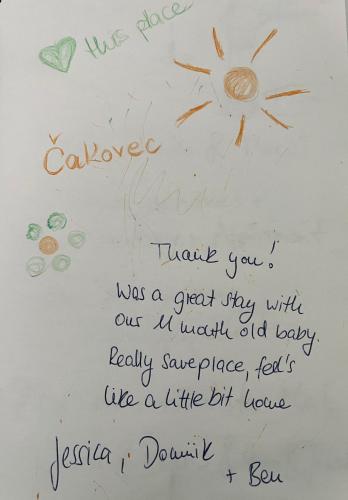 this place
Čakovec
Thank you!
Was a great stay with
our 11 month old baby.
Really save place, feel's
like a little bit home
Jessica, Dominik
+ Ben